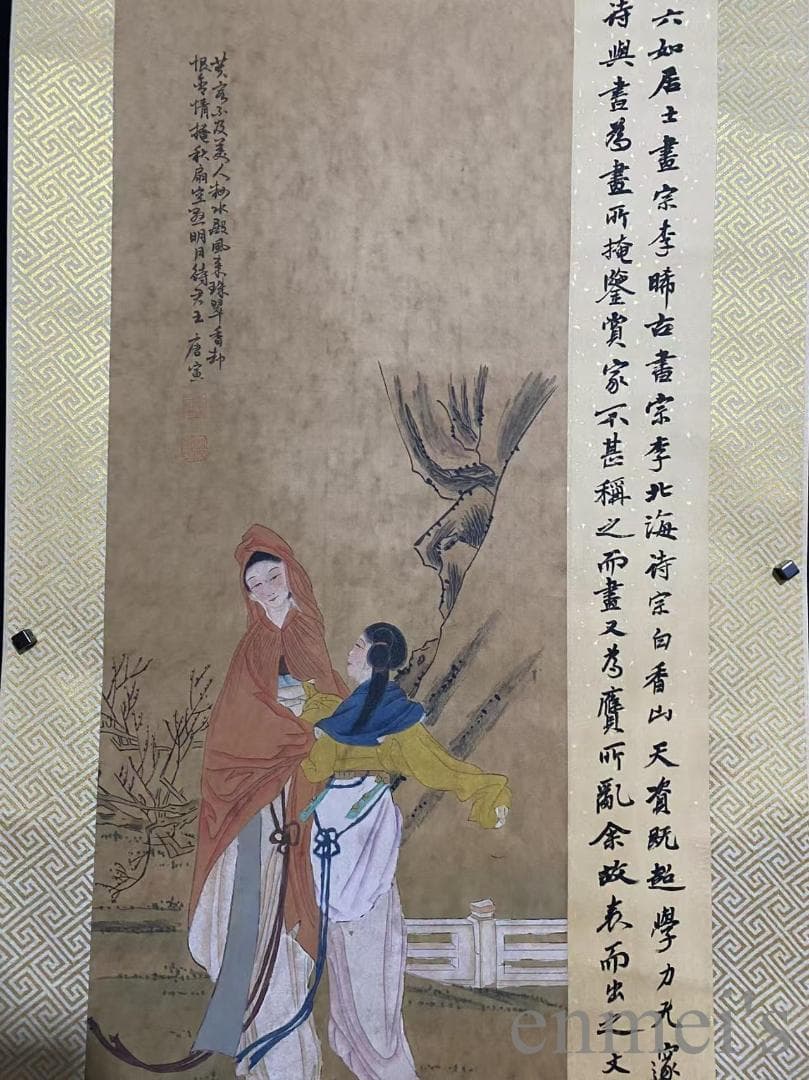 六如居士畫宗李晞古書宗李北海诗宗白香山天資既超學力尤邃
诗與書為畫所掩鑒賞家不甚稱之而畫又為贗所亂余故表而出之文
芙容不及美人妝水殿風來珠翠香却
恨含情掩秋扇空懸明月待君王 唐寅
enmei's